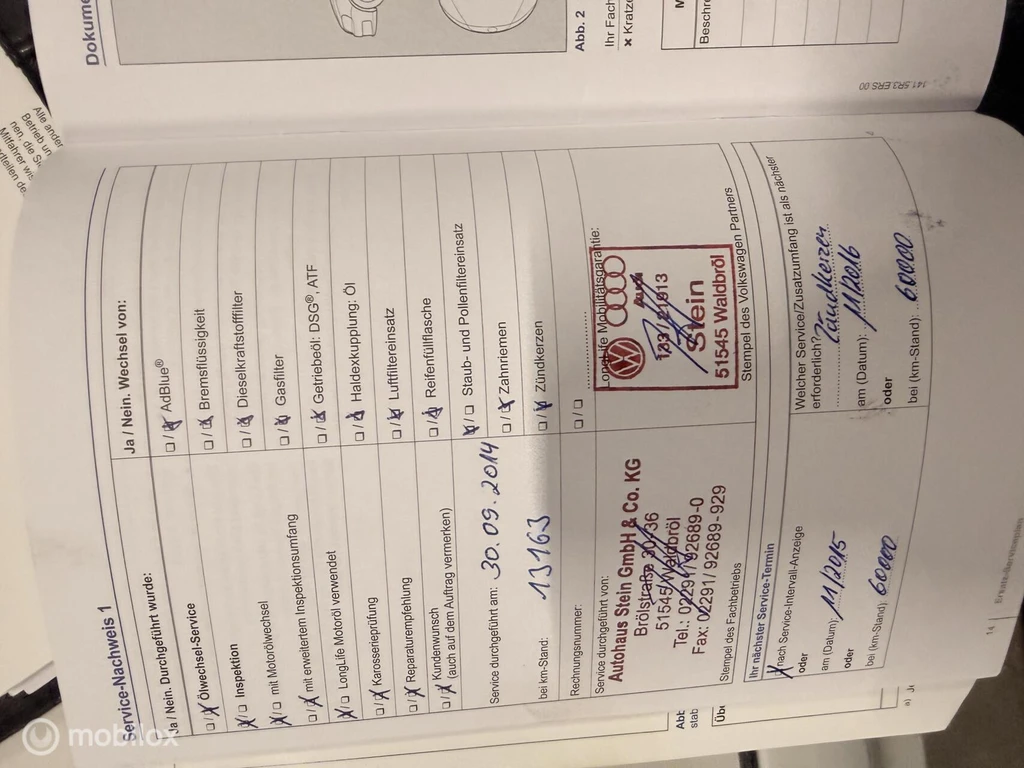 Service-Nachweis 1
Ja / Nein. Durchgeführt wurde:
☐/☒ Ölwechsel-Service
☒/☐ Inspektion
☒/☐ mit Motorölwechsel
☐/☒ mit erweitertem Inspektionsumfang
☒/☐ LongLife Motoröl verwendet
☐/☒ Karosserieprüfung
☐/☒ Reparaturempfehlung
☐/☒ Kundenwunsch
(auch auf dem Auftrag vermerken)
Ja / Nein. Wechsel von:
☐/☒ AdBlue®
☐/☒ Bremsflüssigkeit
☐/☒ Dieselkraftstofffilter
☐/☒ Gasfilter
☐/☒ Getriebeöl: DSG®, ATF
☐/☒ Haldexkupplung: Öl
☐/☒ Luftfiltereinsatz
☐/☒ Reifenfüllflasche
☒/☐ Staub- und Pollenfiltereinsatz
☐/☒ Zahnriemen
☐/☒ Zündkerzen
☐/☐
Service durchgeführt am: 30.09.2014
bei km-Stand: 13163
Rechnungsnummer:
Service durchgeführt von:
Autohaus Stein GmbH & Co. KG
Brölstraße 36
51545 Waldbröl
Tel.: 02291/92689-0
Fax: 02291/92689-929
Stempel des Fachbetriebs
LongLife Mobilitätsgarantie:
Audi
Stein
51545 Waldbröl
Stempel des Volkswagen Partners
Ihr nächster Service-Termin
☒ nach Service-Intervall-Anzeige
oder
am (Datum): 11/2015
oder
bei (km-Stand): 60000
Welcher Service/Zusatzumfang ist als nächster
erforderlich? Zündkerzen
am (Datum): 11/2016
oder
bei (km-Stand): 60000
14 | Ersatz-Serviceplan
Dokume
Abb. 2
Ihr Fach
× Kratze
M
Beschre
141.5R3.ERS.00
Alle ander
Betrieb un
nen, die Si
Mitfahrer wis
Abb
stab
Übe
a) Je
mobilox